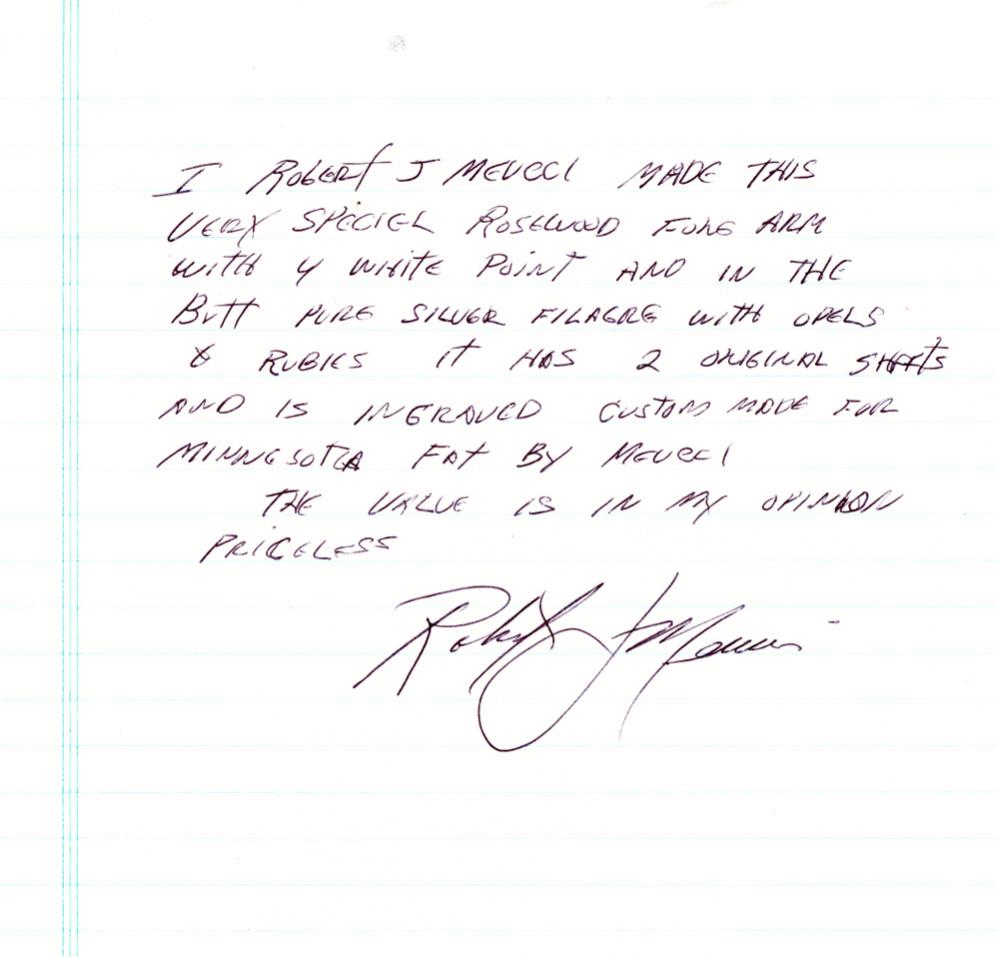 I ROBERT J MEUCCI MADE THIS
VERY SPECIEL ROSEWOOD FORE ARM
WITH 4 WHITE POINT AND IN THE
BUTT PURE SILVER FILAGRE WITH OPELS
& RUBIES IT HAS 2 ORIGINAL SHAFTS
AND IS INGRAVED CUSTOM MADE FOR
MINNESOTA FAT BY MEUCCI
THE VALUE IS IN MY OPINION
PRICELESS
Robert J Meucci